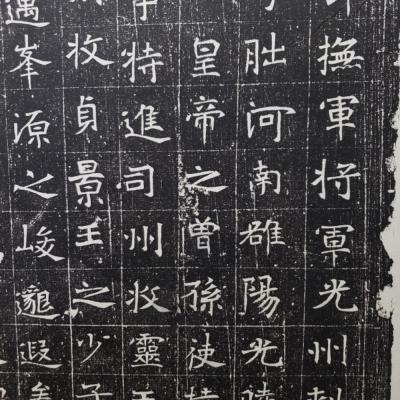 撫軍将軍光州刺
朏河南雒陽光
皇帝之曾孫使持
特進司州牧靈王
牧貞景王之少子
遇峯源之峻邈遐